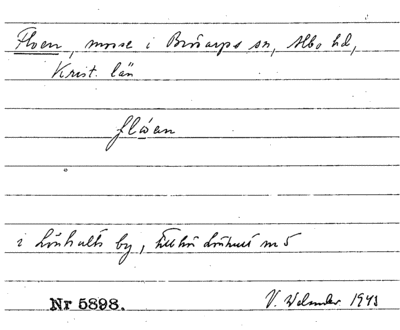 Floen, mosse i Brösarps sn, Albo hd,
Krist. län
flåen
i Lönhults by, tillhör Lönhult nr 5
Nr 5898. V. Welander 1943